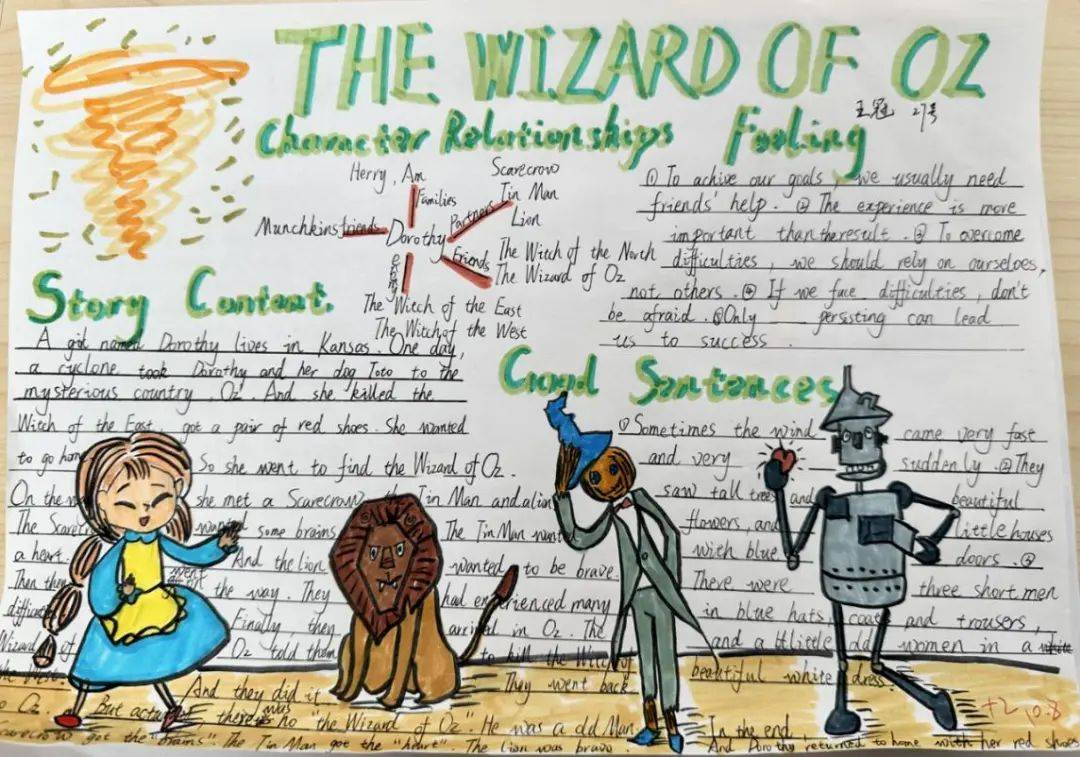 THE WIZARD OF OZ
王冠 27号
Character Relationships
Herry, Am
Families
Scarecrow
Tin Man
Lion
Partners
Munchkins friends
Dorothy
Friends
The Witch of the North
The Wizard of Oz
enemy
The Witch of the East
The Witch of the West
Feeling
① To achive our goals we usually need
friends' help. ② The experience is more
important than the result. ③ To overcome
difficulties, we should rely on ourseloes,
not others. ④ If we face difficulties, don't
be afraid. ⑤ Only persisting can lead
us to success.
Story Content.
A girl named Dorothy lives in Kansas. One day,
a cyclone took Dorothy and her dog Toto to the
mysterious country, Oz. And she killed the
Witch of the East, got a pair of red shoes. She wanted
to go home So she went to find the Wizard of Oz.
On the she met a Scarecrow Tin Man and a lion
The wanted some brains The Tin Man
a heart. And the lion wanted to be brave.
Then they went the way. They had experienced many
Finally, they arrived in Oz. The
Wizard of Oz told them to kill the Witch of
And they did it They went back
to Oz. But there was no "the Wizard of Oz". He was a old Man. In the end
Scarecrow got the "brains". The Tin Man got the "heart". The lion was brave. And Dorothy returned to home with her red shoes
Good Sentences
① Sometimes the wind came very fast
and very suddenly. ② They
saw tall trees and beautiful
flowers, and little houses
with blue doors. ③
There were three short men
in blue hats, coats and trousers,
and a little old women in a
beautiful white dress.
+2 10.8